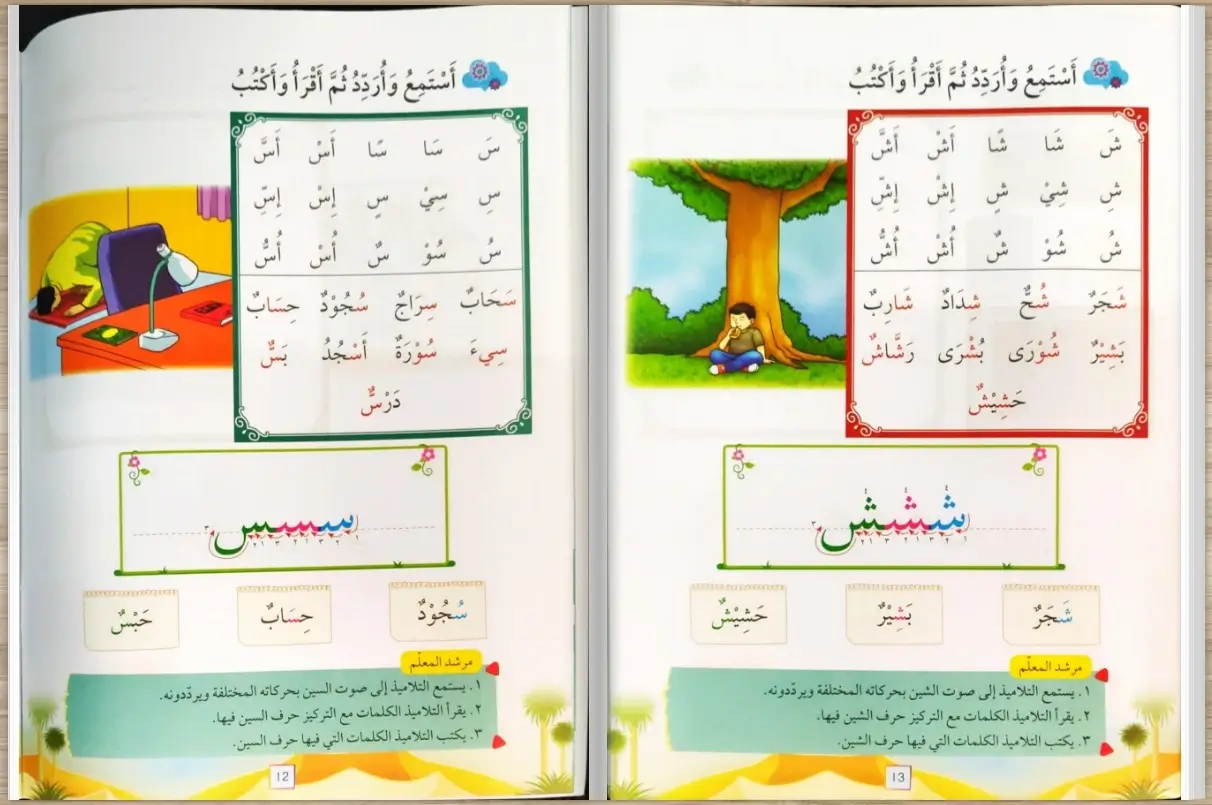 أَسْتَمِعُ وَأُرَدِّدُ ثُمَّ أَقْرَأُ وَأَكْتُبُ
سَ سَا سًا أَسْ أَسَّ
سِ سِيْ سٍ إِسْ إِسِّ
سُ سُوْ سٌ أُسْ أُسُّ
سَحَابٌ سِرَاجٌ سُجُوْدٌ حِسَابٌ
سِيءَ سُوْرَةٌ أَسْجُدُ بَسٌّ
دَرْسٌ
سسس
سُجُوْدٌ حِسَابٌ حَبْسٌ
مرشد المعلّم
١. يستمع التلاميذ إلى صوت السين بحركاته المختلفة ويردّدونه.
٢. يقرأ التلاميذ الكلمات مع التركيز حرف السين فيها.
٣. يكتب التلاميذ الكلمات التي فيها حرف السين.
12
أَسْتَمِعُ وَأُرَدِّدُ ثُمَّ أَقْرَأُ وَأَكْتُبُ
شَ شَا شًا أَشْ أَشَّ
شِ شِيْ شٍ إِشْ إِشِّ
شُ شُوْ شٌ أُشْ أُشُّ
شَجَرٌ شُحٌّ شِدَادٌ شَارِبٌ
بَشِيْرٌ شُوْرَى بُشْرَى رَشَّاشٌ
حَشِيْشٌ
ششش
شَجَرٌ بَشِيْرٌ حَشِيْشٌ
مرشد المعلّم
١. يستمع التلاميذ إلى صوت الشين بحركاته المختلفة ويردّدونه.
٢. يقرأ التلاميذ الكلمات مع التركيز حرف الشين فيها.
٣. يكتب التلاميذ الكلمات التي فيها حرف الشين.
13